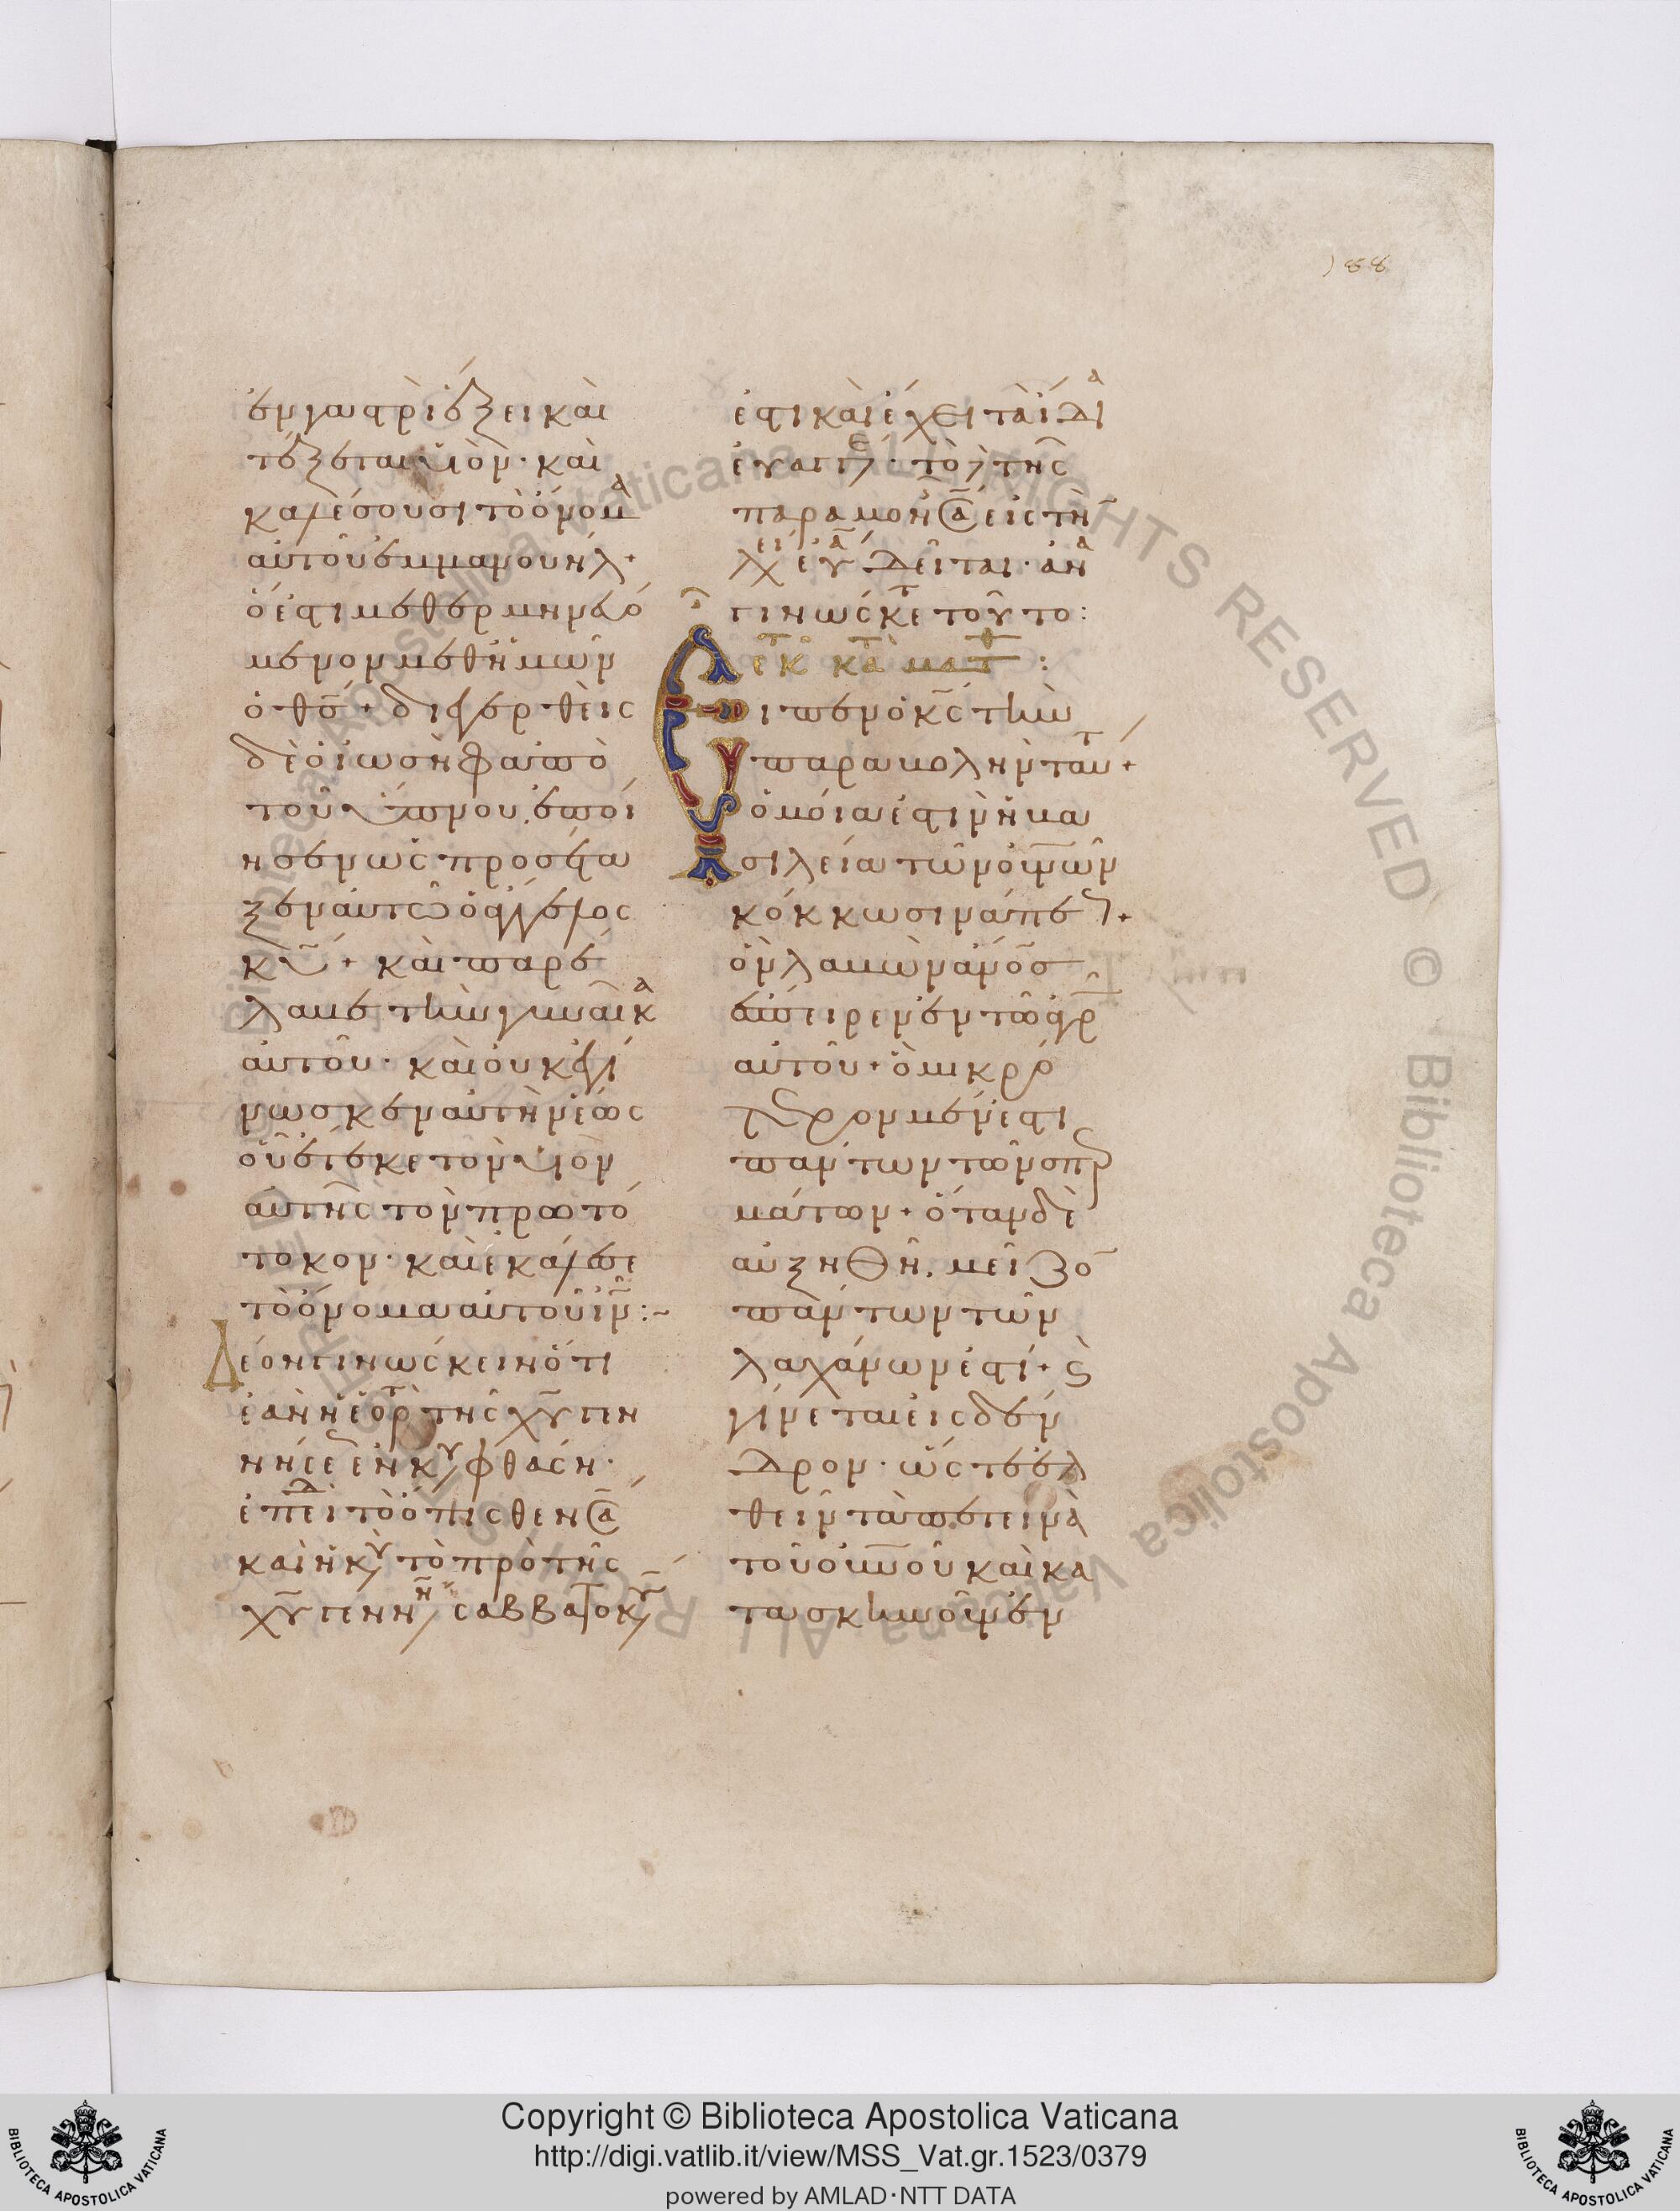 188
ἐν γαστρὶ ἕξει καὶ
τέξεται υἱόν· καὶ
καλέσουσι τὸ ὄνομα
αὐτοῦ ἐμμανουήλ·
ὅ ἐστι μεθερμηνευό
μενον μεθ' ἡμῶν
ὁ θς· διεγερθεὶς
δὲ ὁ ἰωσὴφ ἀπὸ
τοῦ ὕπνου. ἐποί
ησεν ὡς προσέτα
ξεν αὐτῶ ὁ ἄγγελος
κυ· καὶ παρέ
λαβε τὴν γυναῖκα
αὐτοῦ· καὶ οὐκ ἐγί
νωσκεν αὐτὴν ἕως
οὗ ἔτεκε τὸν υἱὸν
αὐτῆς τὸν πρωτό
τοκον· καὶ ἐκάλεσε
τὸ ὄνομα αὐτοῦ ιν:~
Δέον γινώσκειν ὅτι
ἐὰν ἡ ἑορτ τῆς χυ γεν
νήσε ἐν κυ φθάση·
ἐπεὶ τὸ ὄπισθεν σα
καὶ ἡ κυ τὸ πρὸ τῆς
χυ γενν σαββατοκυ
ἐστὶ καὶ ἔχει τὰ ἴδι
εὐαγγελ· τὸ λ τῆς
παραμον σα εἰς τὴν
λει εὐα δεῖται· ἀνα
γινωσκετ τοῦτο:
ἐκ κατὰ ματθ:
Εἶπεν ὁ κς τὴν
παραβολὴν ταυτ·
ὁμοία ἐστὶν ἡ βα
σιλεία τῶν ουνων
κόκκω σινάπεως·
ὃν λαβὼν ανος
ἔσπειρεν ἐν τῶ ἀγρ
αὐτοῦ· ὃ μικρό
τερον μέν ἐστι
πάντων τῶν σπερ
μάτων· ὅταν δὲ
αὐξηθῆ. μεῖζον
πάντων τῶν
λαχάνων ἐστί· καὶ
γίνεται εἰς δέν
δρον· ὥστε ἐλ
θεῖν τὰ πετεινὰ
τοῦ ουνου καὶ κα
τασκηνοῦν ἐν
Copyright © Biblioteca Apostolica Vaticana
http://digi.vatlib.it/view/MSS_Vat.gr.1523/0379
powered by AMLAD·NTT DATA
BIBLIOTECA APOSTOLICA VATICANA
BIBLIOTECA APOSTOLICA VATICANA